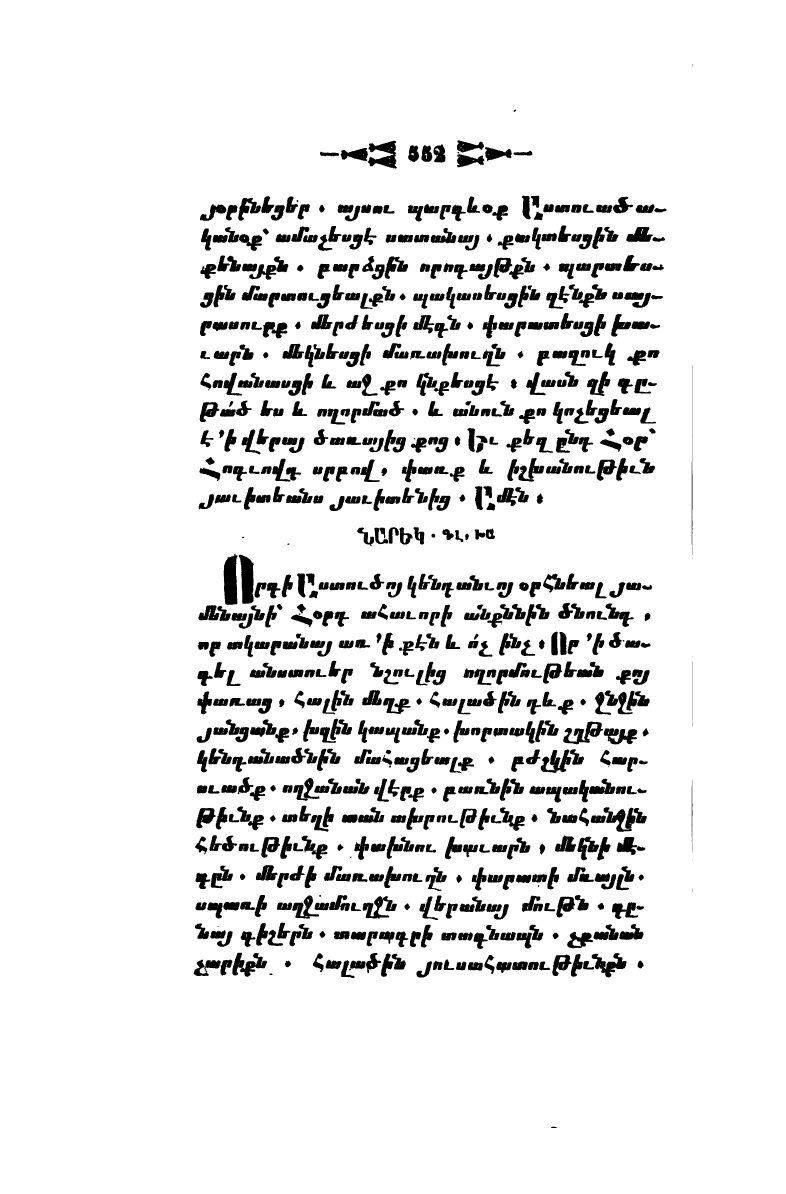 552
յօրինեցեր . այսու պարգևօք Աստուածա-
կանօք՝ ամաչեսցէ սատանայ . քակտեսցին մե-
քենայքն . բարձցին որոգայթքն . պարտես-
ցին մարտուցեալքն . պակասեսցին զէնքն սայ-
րասուրք . մերժեսցի մէգն . փարատեսցի խա-
ւարն . մեկնեսցի մառախուղն . բազուկ քո
հովանասցի և աջ քո կնքեսցէ : վասն զի գը-
թած ես և ողորմած . և անուն քո կոչեցեալ
է ՚ի վերայ ծառայից քոց : Եւ քեզ ընդ Հօր՝
Հոգւովդ սրբով, փառք և իշխանութիւն
յաւիտեանս յաւիտենից . Ամէն :
ՆԱՐԵԿ . ԳԼ, ԽԱ
Որդի Աստուծոյ կենդանւոյ օրհնեալ յա-
մենայնի՝ Հօրդ ահաւորի անքննին ծնունդ ,
որ տկարանայ առ ՚ի քէն և ո՛չ ինչ : Որ ՚ի ծա-
գել անստուեր նշուլից ողորմութեան քոյ
փառաց , հալին մեղք . հալածին դևք . ջնջին
յանցանք, խզին կապանք . խորտակին շղթայք .
կենդանածնին մահացեալք . բժշկին հար-
ուածք . ողջանան վէրք . բառնին ապականու-
թիւնք . տեղի տան տխրութիւնք . նահանջին
հեծութիւնք . փախնու խաւարն , մեկնի մէ-
գըն . մերժի մառախուղն . փարատի մռայլն .
սպառի աղջամուղջն . վերանայ մութն . գը-
նայ գիշերն . տարագրի տագնապն . չքանան
չարիքն . հալածին յուսահատութիւնքն .